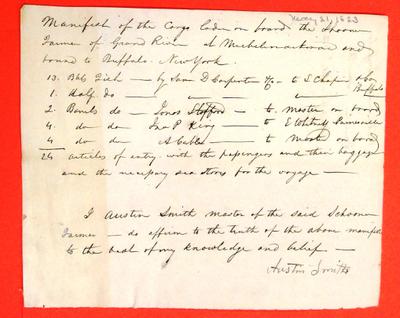 Manifest of the Cargo laden on board the Schooner
Farmer of Grand River at Michilimackinac and
bound to Buffalo. New York.
13. Bbls Fish — by Sam D Carpenter — to S Chapin
Buffalo
1. Half do —
2. Barrels do — Jonas Stafford — to master on board
4. do do — Jno P King — to E Painesville
4. do do — A Cables — to Master on board
24 articles of entry with the pasengers and their baggage
and the necesary sea stores for the voyage —
I Austin Smith master of the said Schooner
Farmer — do affirm to the truth of the above manifest
to the best of my knowledge and belief —
Austin Smith
21, 1823